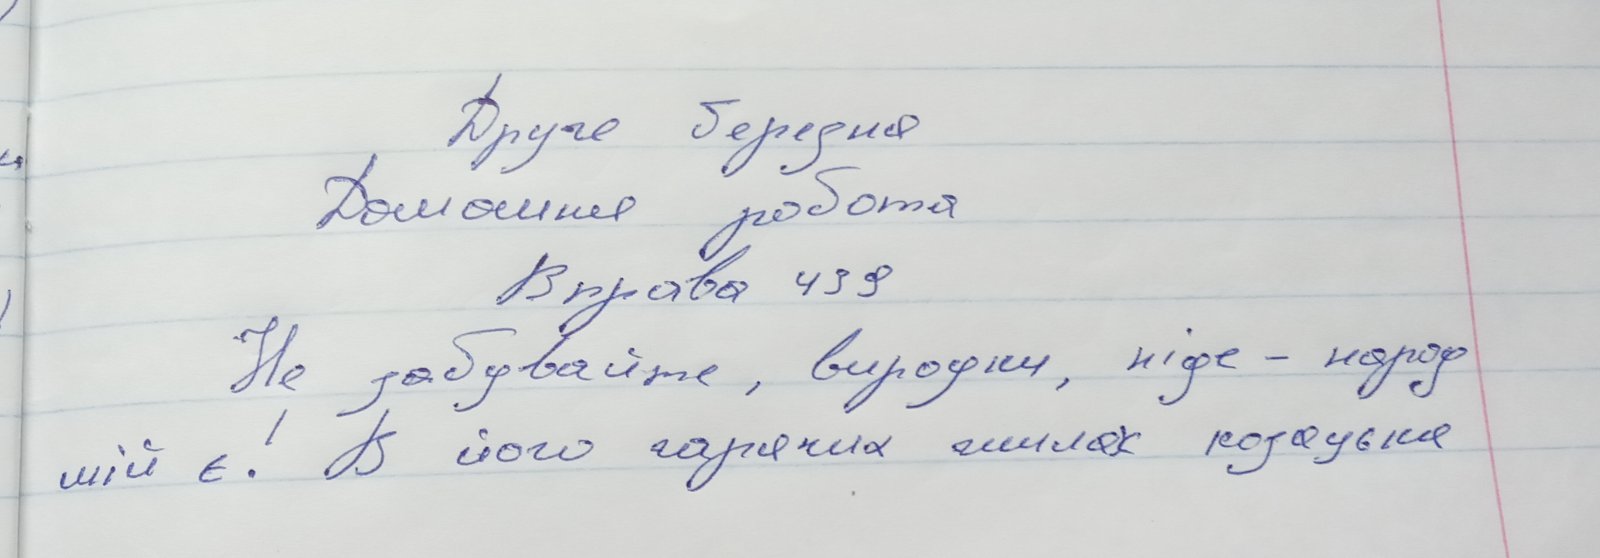 Друге березня
Домашня робота
Вправа 439
Не забувайте, виродки, ніде – народ
мій є! В його гарячих жилах козацька